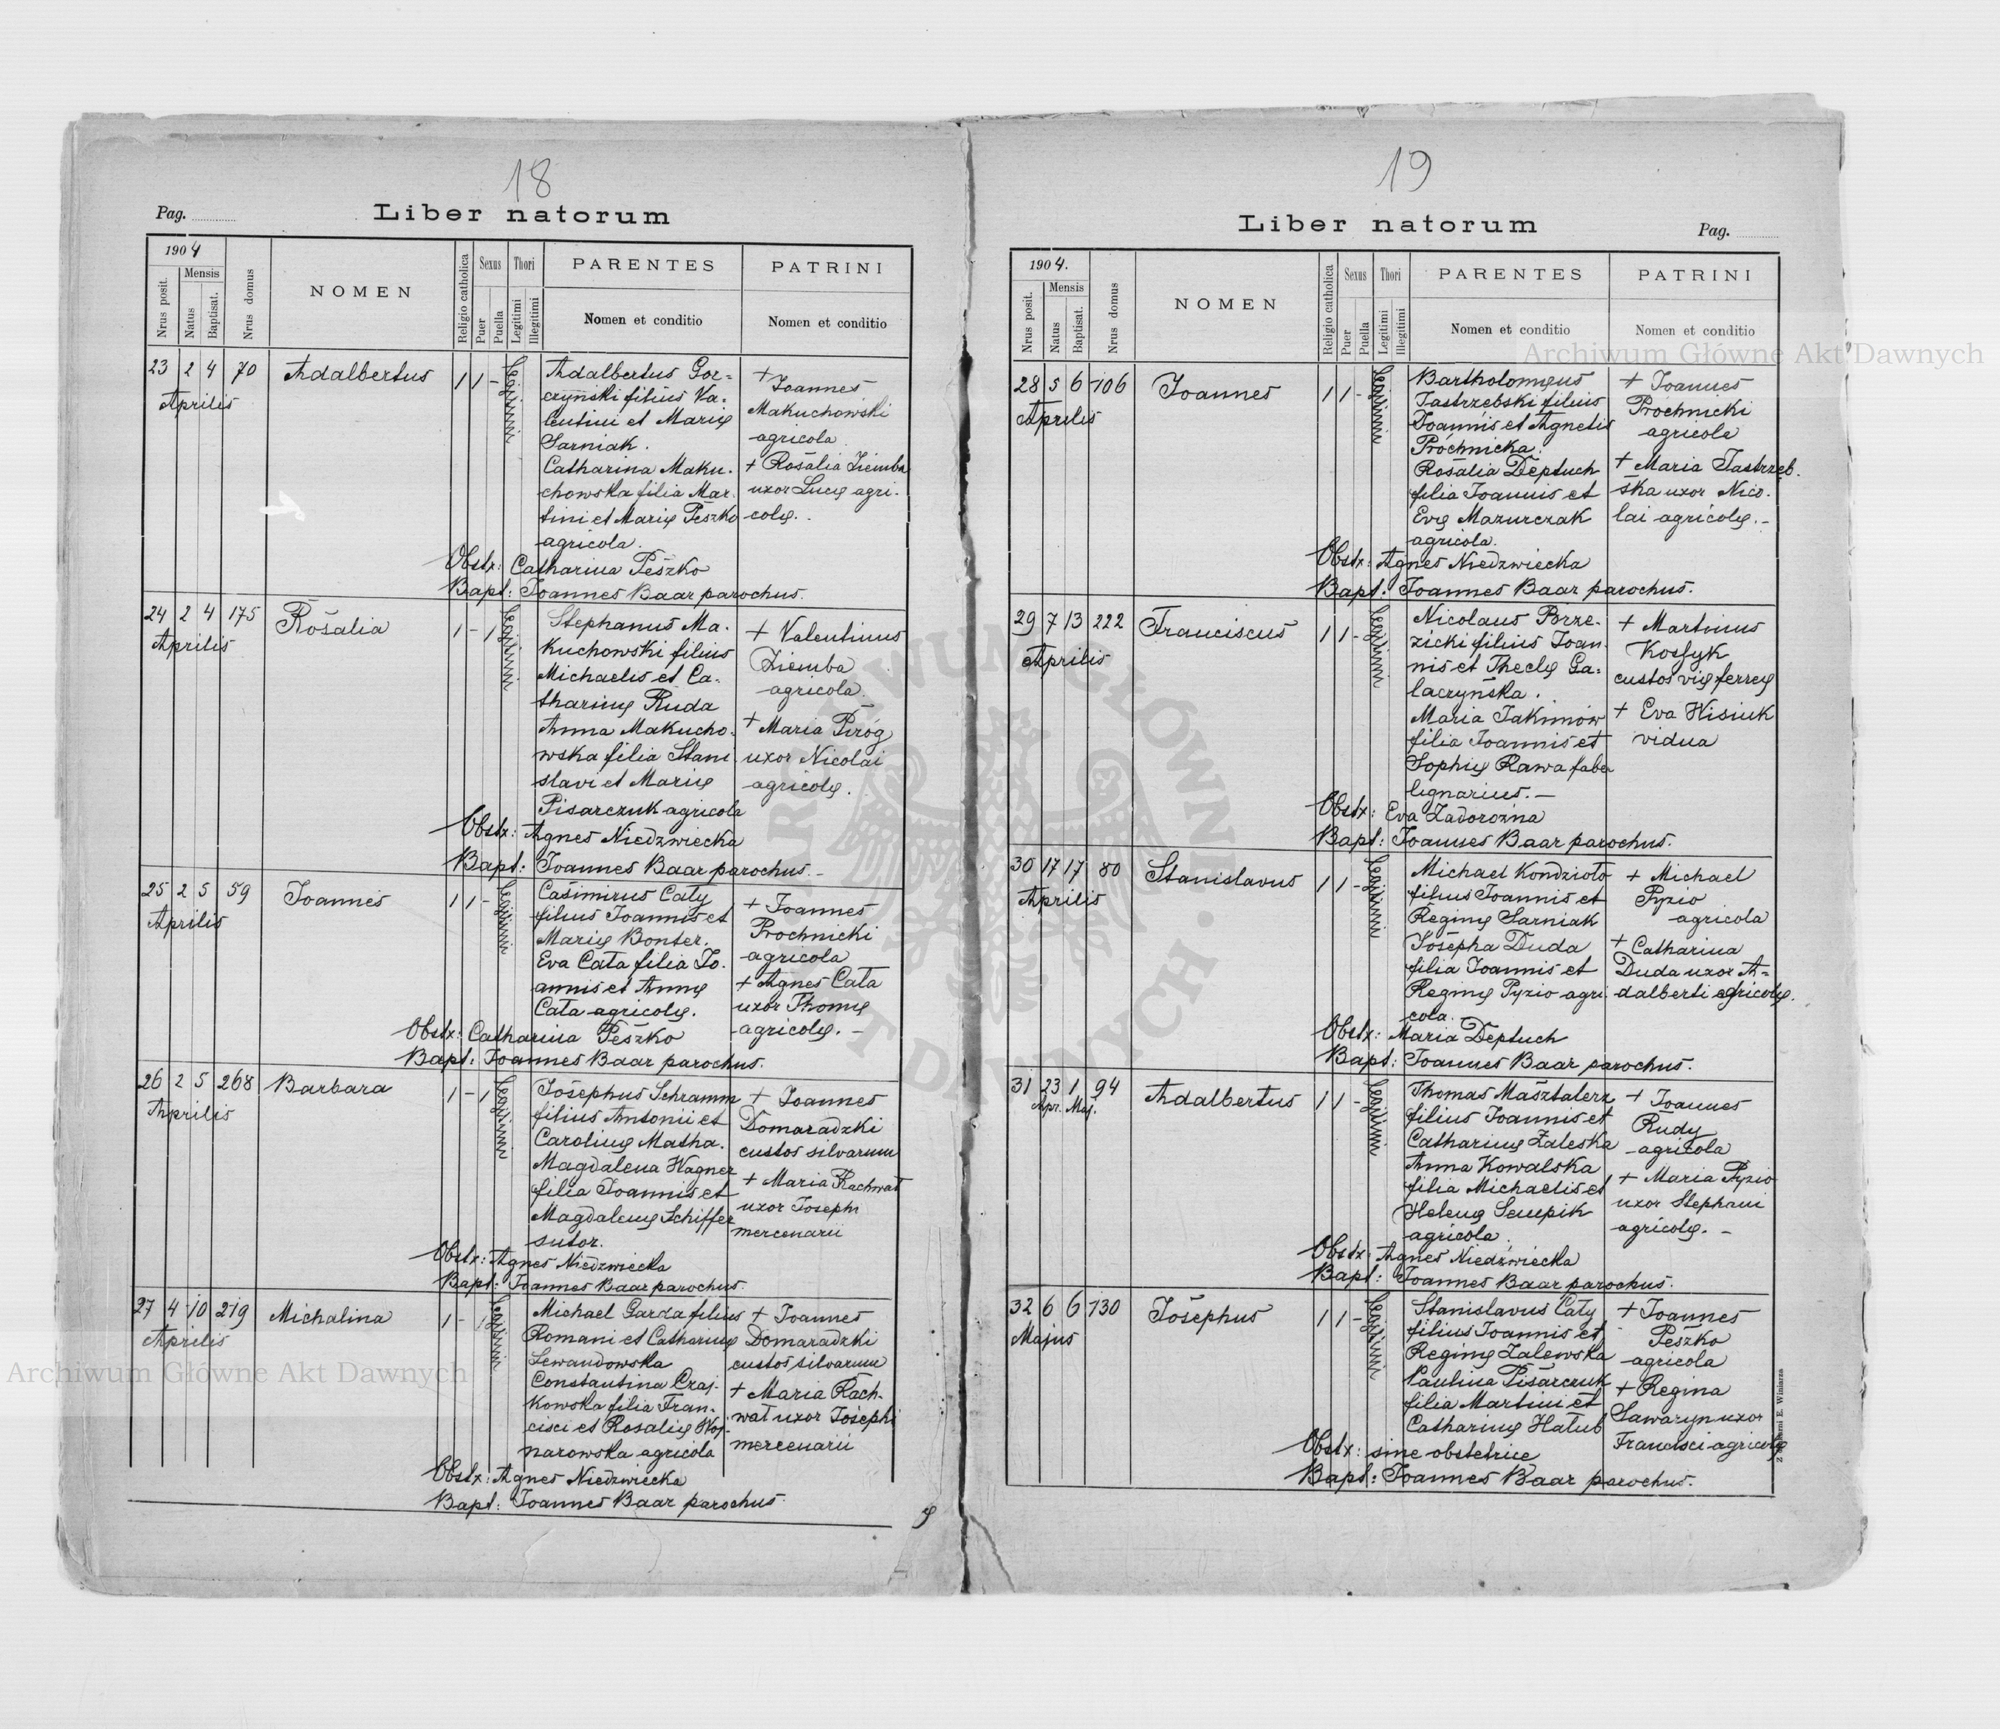 18
Pag.
Liber natorum
1904
Nrus posit.
Mensis
Natus
Baptisat.
Nrus domus
NOMEN
Religio catholica
Sexus
Puer
Puella
Thori
Legitimi
Illegitimi
PARENTES
Nomen et conditio
PATRINI
Nomen et conditio
23 2 4 70 Adalbertus 1 1 - legitimi
Aprilis
Adalbertus Gor=
czyński filius Va=
lentini et Marię
Sarniak.
Catharina Maku-
chowska filia Mar-
tini et Marię Peszko
agricola.
+ Joannes
Makuchowski
agricola
+ Rosalia Ziemba
uxor Lucę agri-
colę.
Obstx: Catharina Peszko
Bapt: Joannes Baar parochus.
24 2 4 175 Rosalia 1 - 1 legitimi
Aprilis
Stephanus Ma-
kuchowski filius
Michaelis et Ca-
tharinę Ruda
Anna Makucho-
wska filia Stani-
slavi et Marię
Pisarczuk agricola
+ Valentinus
Ziemba
agricola.
+ Maria Piróg
uxor Nicolai
agricolę.
Obstx: Agnes Niedzwiecka
Bapt: Joannes Baar parochus.-
25 2 5 59 Joannes 1 1 - legitimi
Aprilis
Casimirus Cały
filius Joannis et
Marię Bonter.
Eva Cała filia Jo-
annis et Annę
Cała agricolę.
+ Joannes
Prochnicki
agricola
+ Agnes Cała
uxor Thomę
agricolę. -
Obstx: Catharina Peszko
Bapt: Joannes Baar parochus.
26 2 5 268 Barbara 1 - 1 legitimi
Aprilis
Josephus Schramm
filius Antonii et
Carolinę Matha.
Magdalena Wagner
filia Joannis et
Magdalenę Schiffer
sutor.
+ Joannes
Domaradzki
custos silvarum
+ Maria Rachwał
uxor Josephi
mercenarii
Obstx: Agnes Niedzwiecka
Bapt: Joannes Baar parochus.
27 4 10 219 Michalina 1 - 1 legitimi
Aprilis
Michael Garza filius
Romani et Catharinę
Lewandowska
Constantina Czaj-
kowska filia Fran-
cisci et Rosalię Woj-
narowska agricola
+ Joannes
Domaradzki
custos silvarum
+ Maria Rach-
wał uxor Josephi
mercenarii
Obstx: Agnes Niedzwiecka
Bapt: Joannes Baar parochus.
19
Liber natorum
Pag.
1904.
Nrus posit.
Mensis
Natus
Baptisat.
Nrus domus
NOMEN
Religio catholica
Sexus
Puer
Puella
Thori
Legitimi
Illegitimi
PARENTES
Nomen et conditio
PATRINI
Nomen et conditio
28 5 6 106 Joannes 1 1 - legitimi
Aprilis
Bartholomęus
Jastrzebski filius
Joannis et Agnetis
Próchnicka.
Rosalia Deptuch
filia Joannis et
Evę Mazurczak
agricola.
+ Joannes
Próchnicki
agricola
+ Maria Jastrzeb-
ska uxor Nico-
lai agricolę.-
Obstx: Agnes Niedzwiecka
Bapt: Joannes Baar parochus.
29 7 13 222 Franciscus 1 1 - legitimi
Aprilis
Nicolaus Brze-
zicki filius Joan-
nis et Theclę Ga-
laczyńska.
Maria Jakimów
filia Joannis et
Sophię Rawa faber
lignarius.-
+ Martinus
Kossyk
custos vię ferreę
+ Eva Hisiuk
vidua
Obstx: Eva Zadorożna
Bapt: Joannes Baar parochus.
30 17 17 80 Stanislavus 1 1 - legitimi
Aprilis
Michael Kondzioło
filius Joannis et
Reginę Sarniak
Josepha Duda
filia Joannis et
Reginę Pyzio agri-
cola.
+ Michael
Pyzio
agricola
+ Catharina
Duda uxor A=
dalberti agricolę.
Obstx: Maria Deptuch
Bapt: Joannes Baar parochus.
31 23 1 94 Adalbertus 1 1 - legitimi
Apr. Maj.
Thomas Masztalerz
filius Joannis et
Catharinę Zaleska
Anna Kowalska
filia Michaelis et
Helenę Sempik
agricola.
+ Joannes
Rudy
agricola
+ Maria Pyzio
uxor Stephani
agricolę. -
Obstx: Agnes Niedzwiecka
Bapt: Joannes Baar parochus.
32 6 6 130 Josephus 1 1 - legitimi
Majus
Stanislavus Cały
filius Joannis et
Reginę Zalewska
Paulina Pisarczuk
filia Martini et
Catharinę Hałub
+ Joannes
Peszko
agricola
+ Regina
Sawaryn uxor
Francisci agricolę
Obstx: sine obstetrice
Bapt: Joannes Baar parochus.
Archiwum Główne Akt Dawnych
Archiwum Główne Akt Dawnych
ARCHIWUM GŁÓWNE AKT DAWNYCH